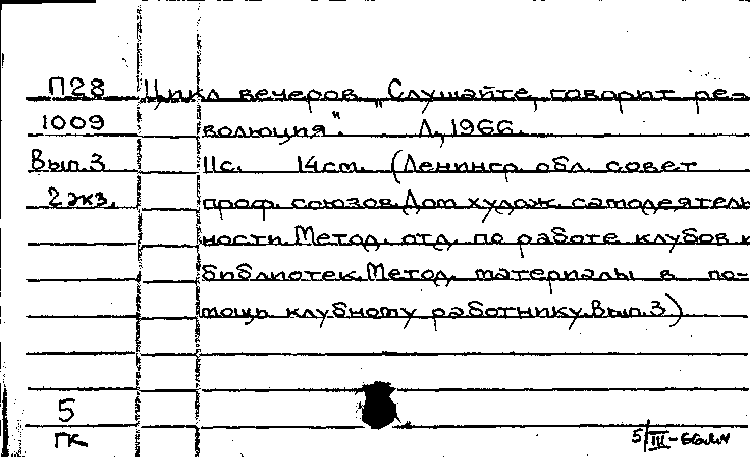 П28 Цикл вечеров „Слушайте, говорит ре-
1009 волюция". Л., 1966.
Вып.3 11с. 14см. (Ленингр. обл. совет
2 экз. проф. союзов. Дом худож. самодеятель-
ности. Метод. отд. по работе клубов и
библиотек. Метод. материалы в по-
мощь клубному работнику. Вып. 3)
5
ГК 5/III-66